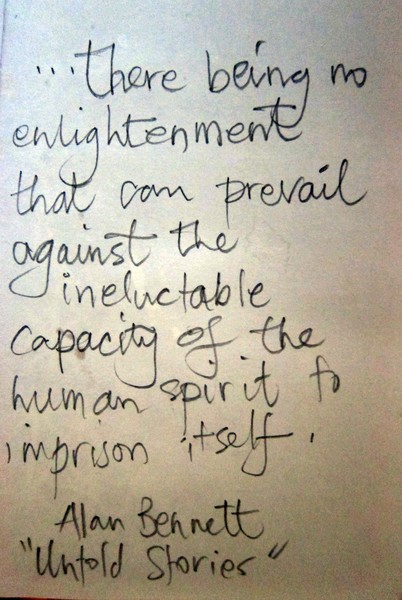 ...there being no
enlightenment
that can prevail
against the
ineluctable
capacity of the
human spirit to
imprison itself.
Alan Bennett
"Untold Stories"